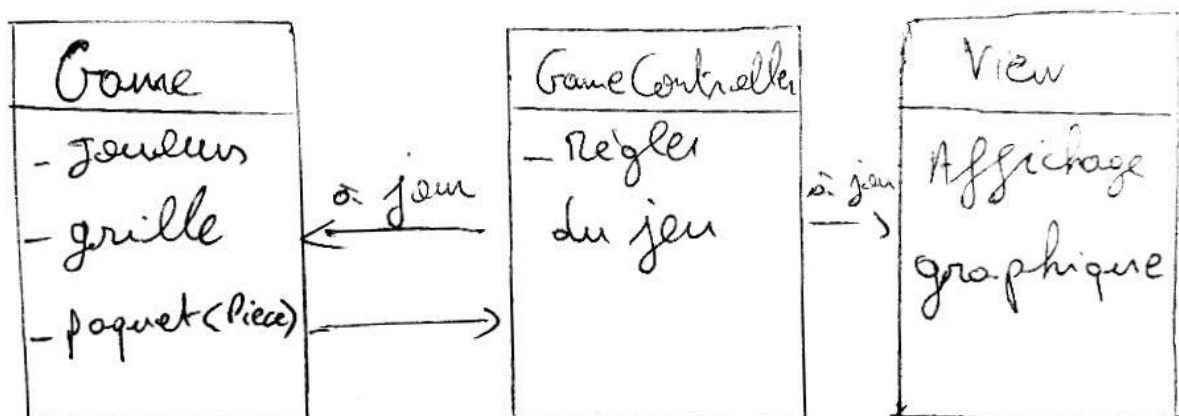 Game
- joueurs
- grille
- paquet (Pièce)
à jour
GameController
- Règles
du jeu
à jour
View
Affichage
graphique